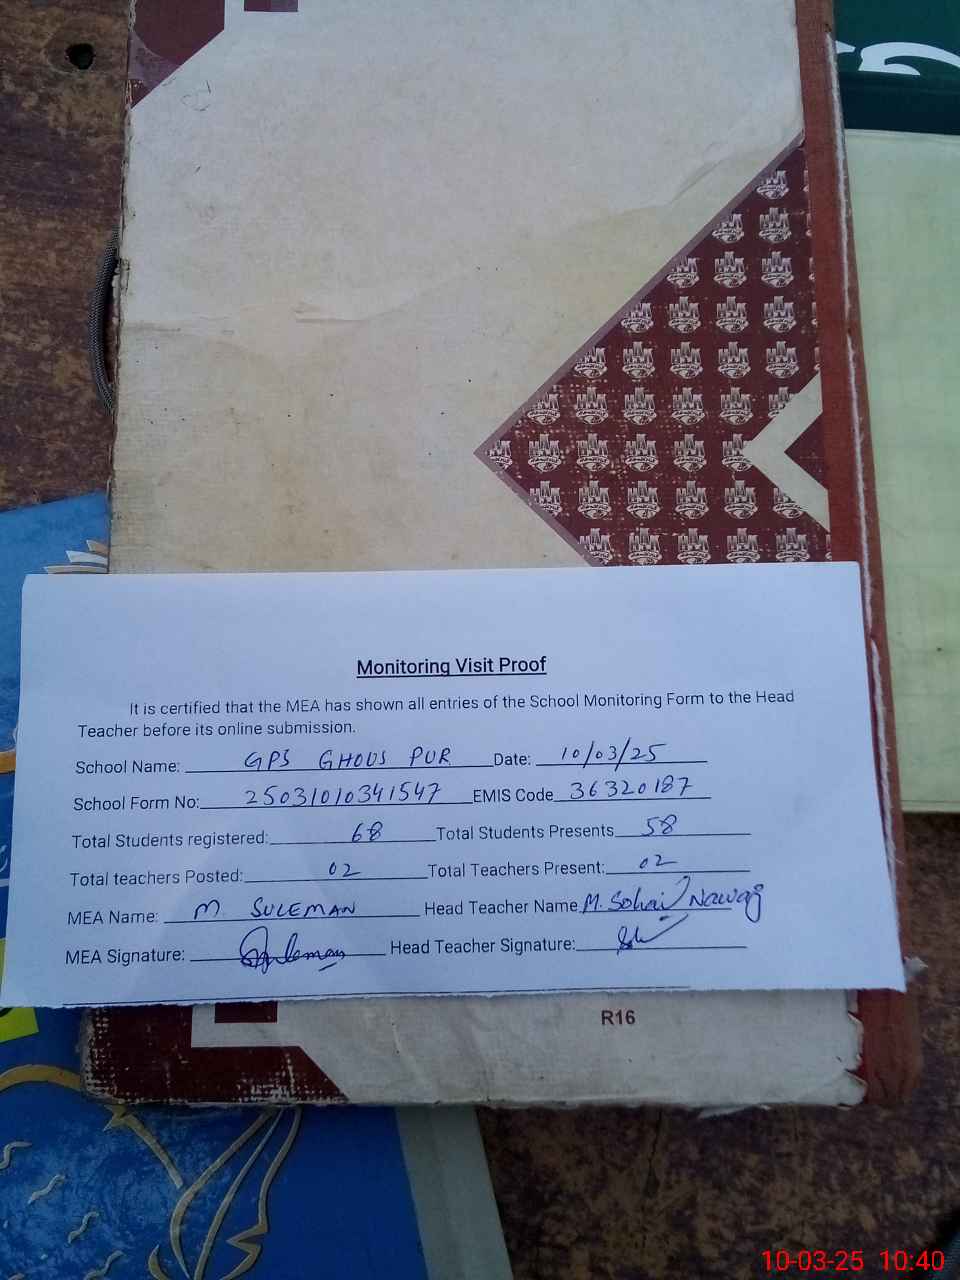 Monitoring Visit Proof
It is certified that the MEA has shown all entries of the School Monitoring Form to the Head
Teacher before its online submission.
School Name: GPS GHOUS PUR Date: 10/03/25
School Form No: 25031010341547 EMIS Code 36320187
Total Students registered: 68 Total Students Presents 58
Total teachers Posted: 02 Total Teachers Present: 02
MEA Name: M. SULEMAN Head Teacher Name M. Sohail Nawaz
MEA Signature: Suleman Head Teacher Signature:
R16
10-03-25 10:40